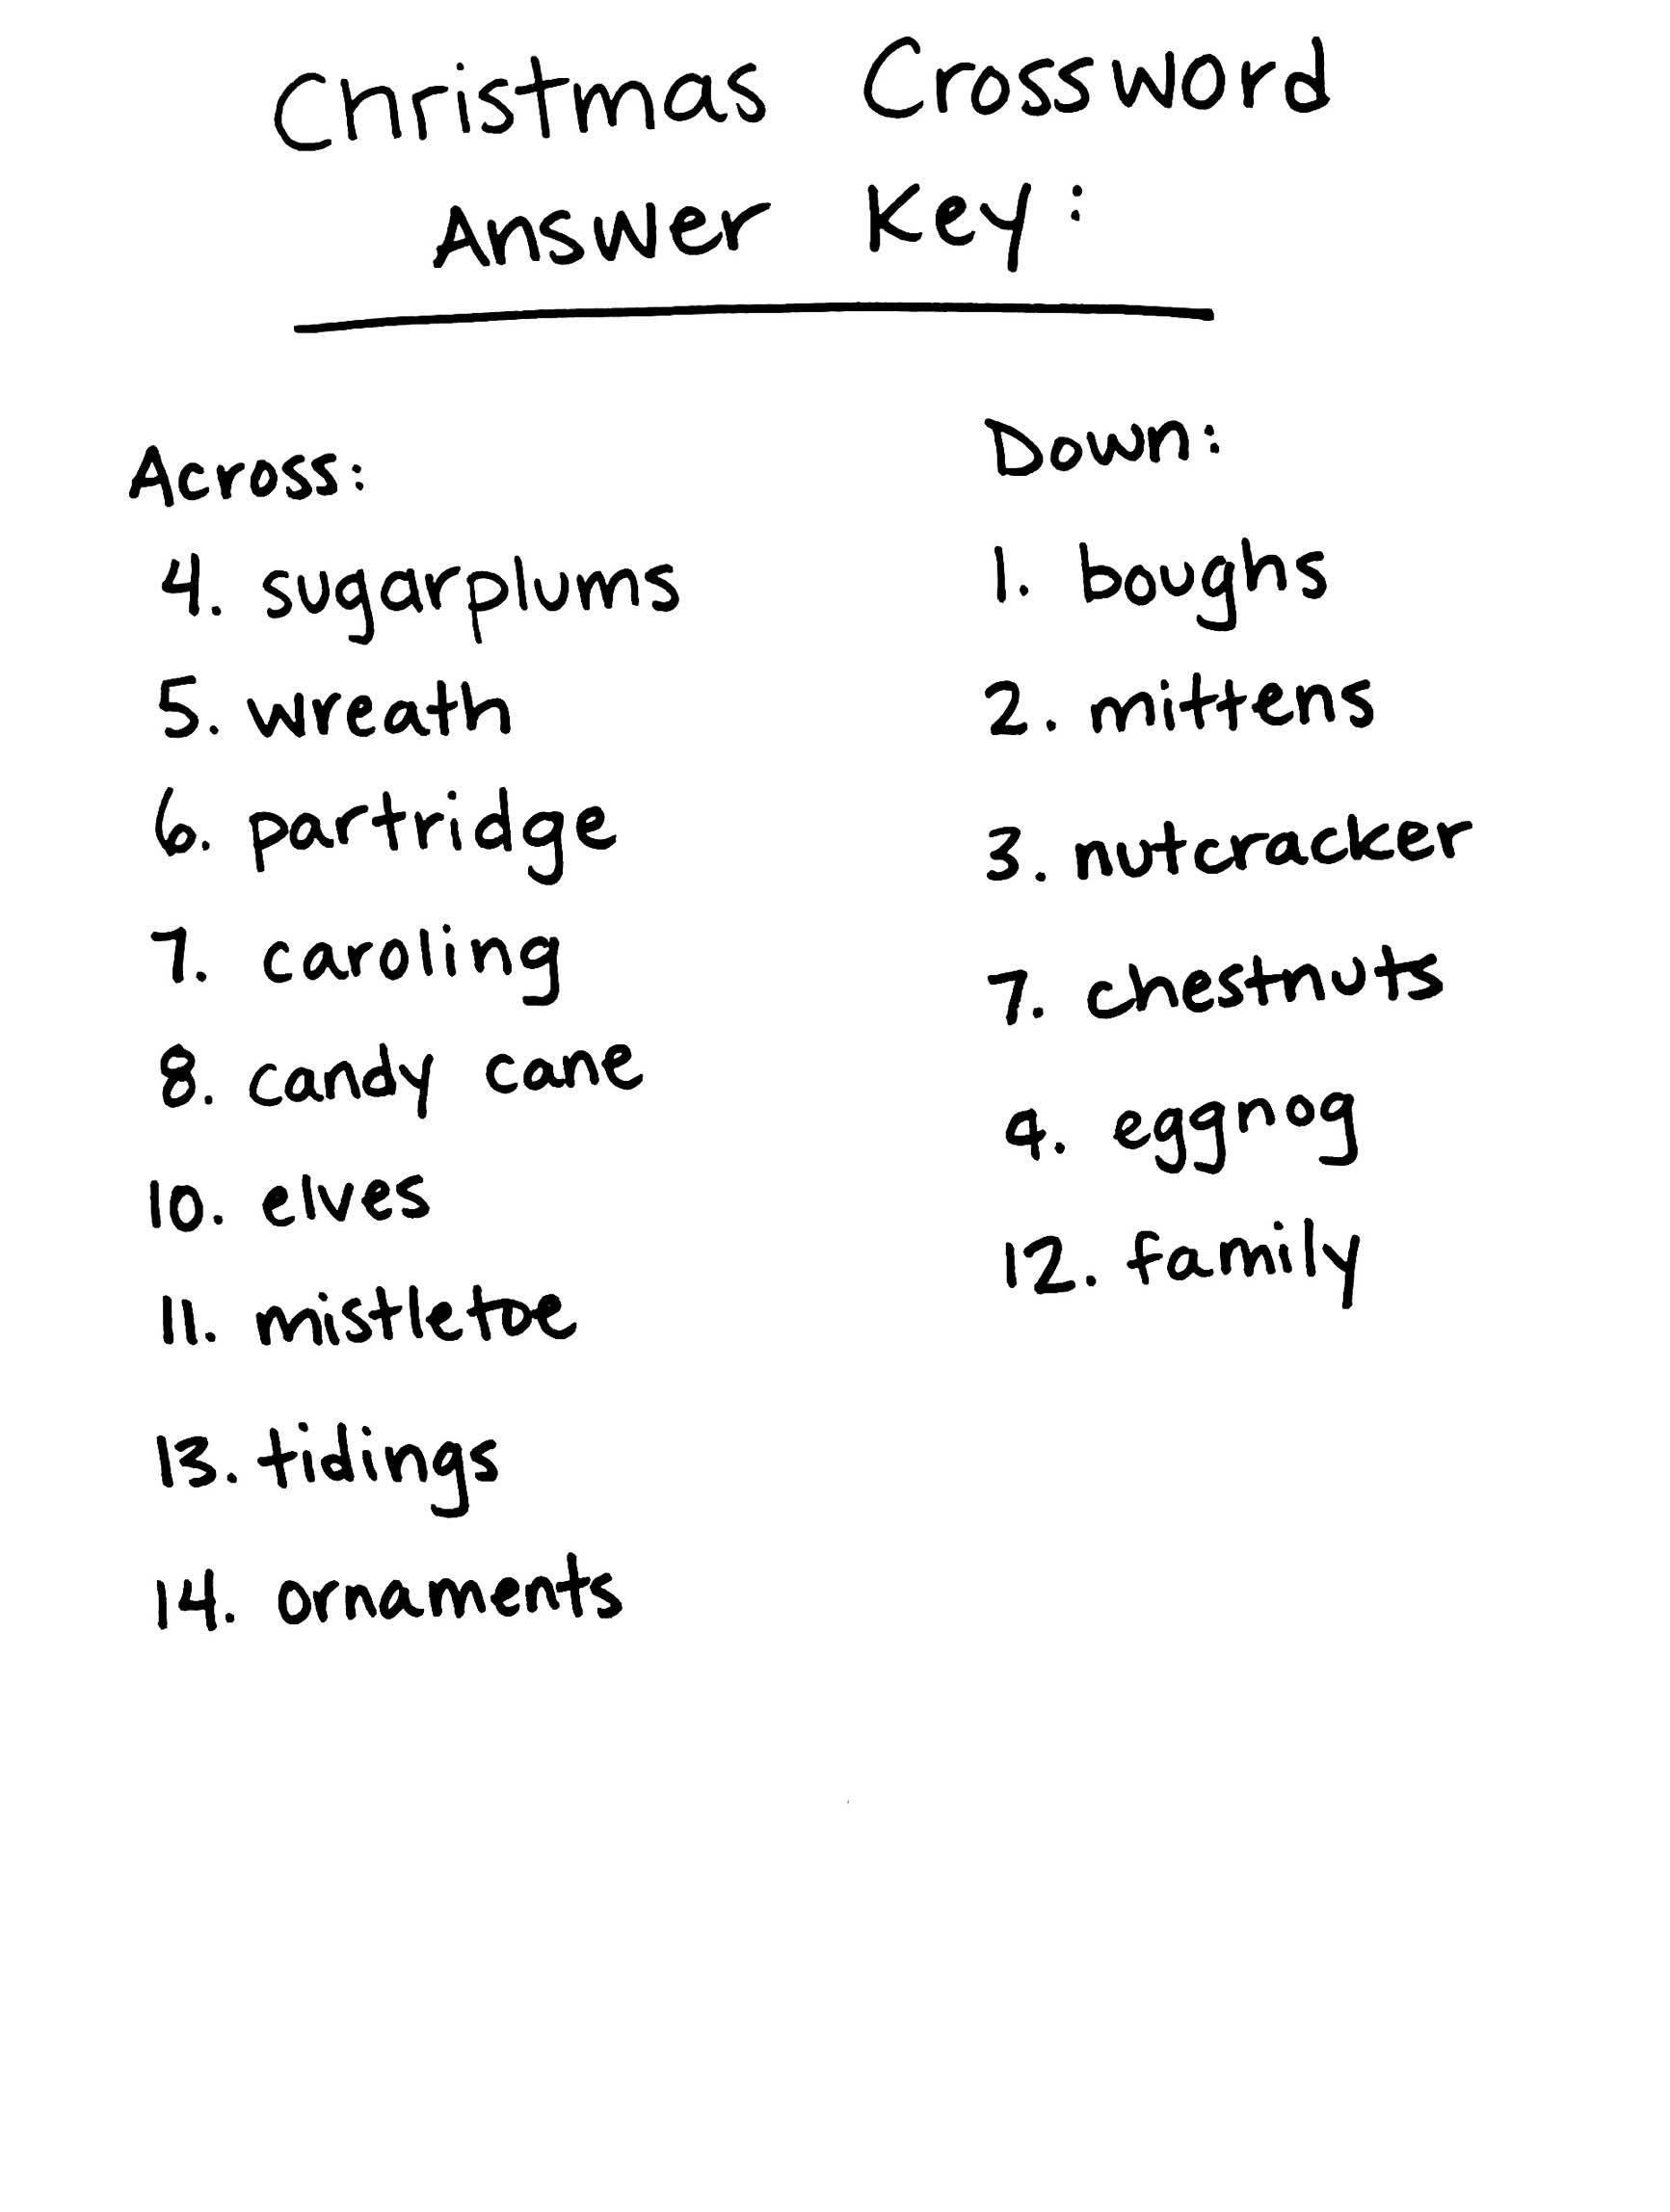 Christmas Crossword
Answer Key:
Across:
4. sugarplums
5. wreath
6. partridge
7. caroling
8. candy cane
10. elves
11. mistletoe
13. tidings
14. ornaments
Down:
1. boughs
2. mittens
3. nutcracker
7. chestnuts
9. eggnog
12. family